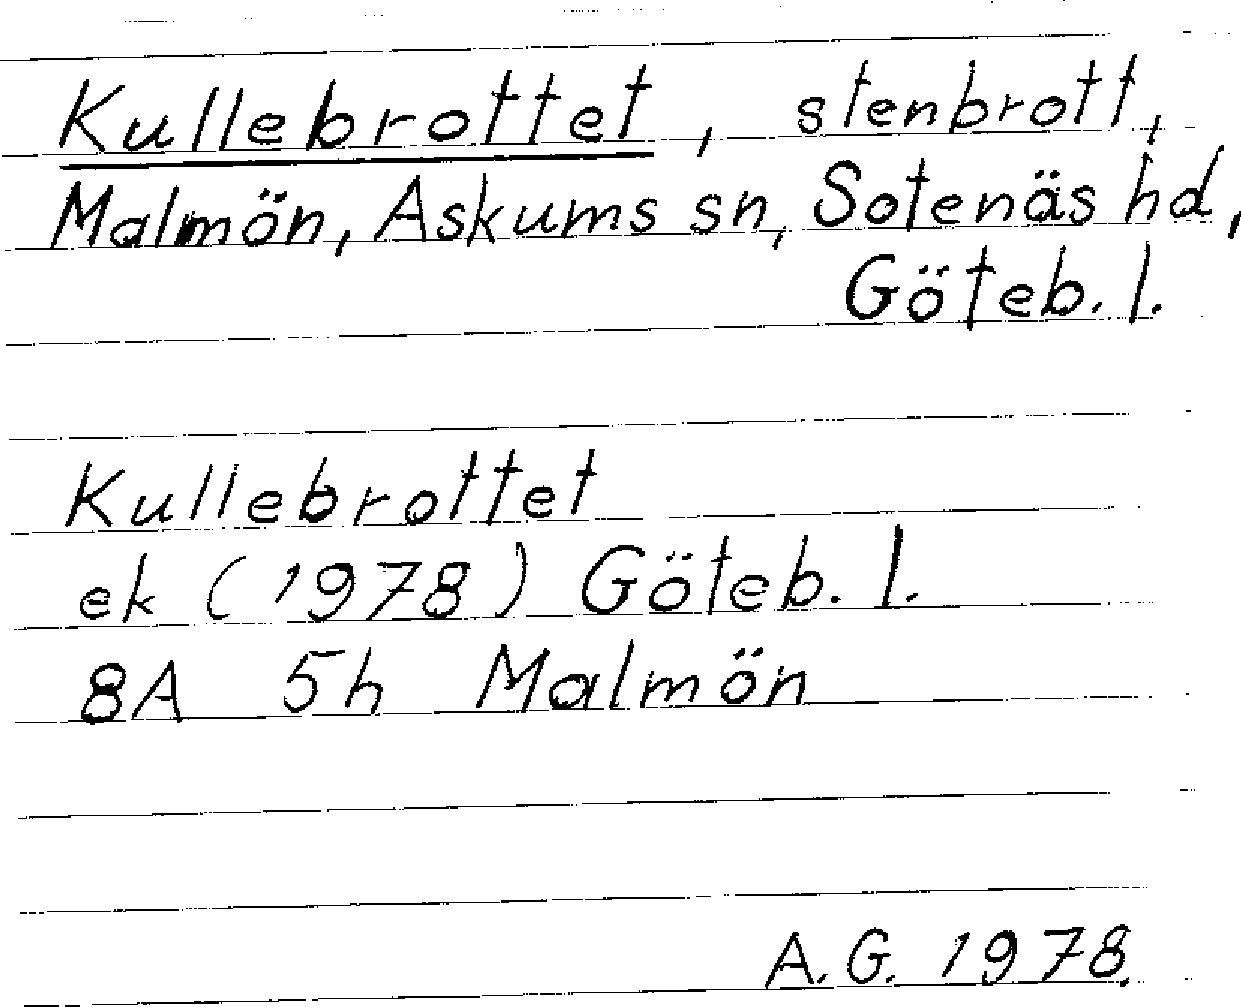 Kullebrottet, stenbrott,
Malmön, Askums sn, Sotenäs hd,
Göteb. l.
Kullebrottet
ek (1978) Göteb. l.
8A 5h Malmön
A.G. 1978.